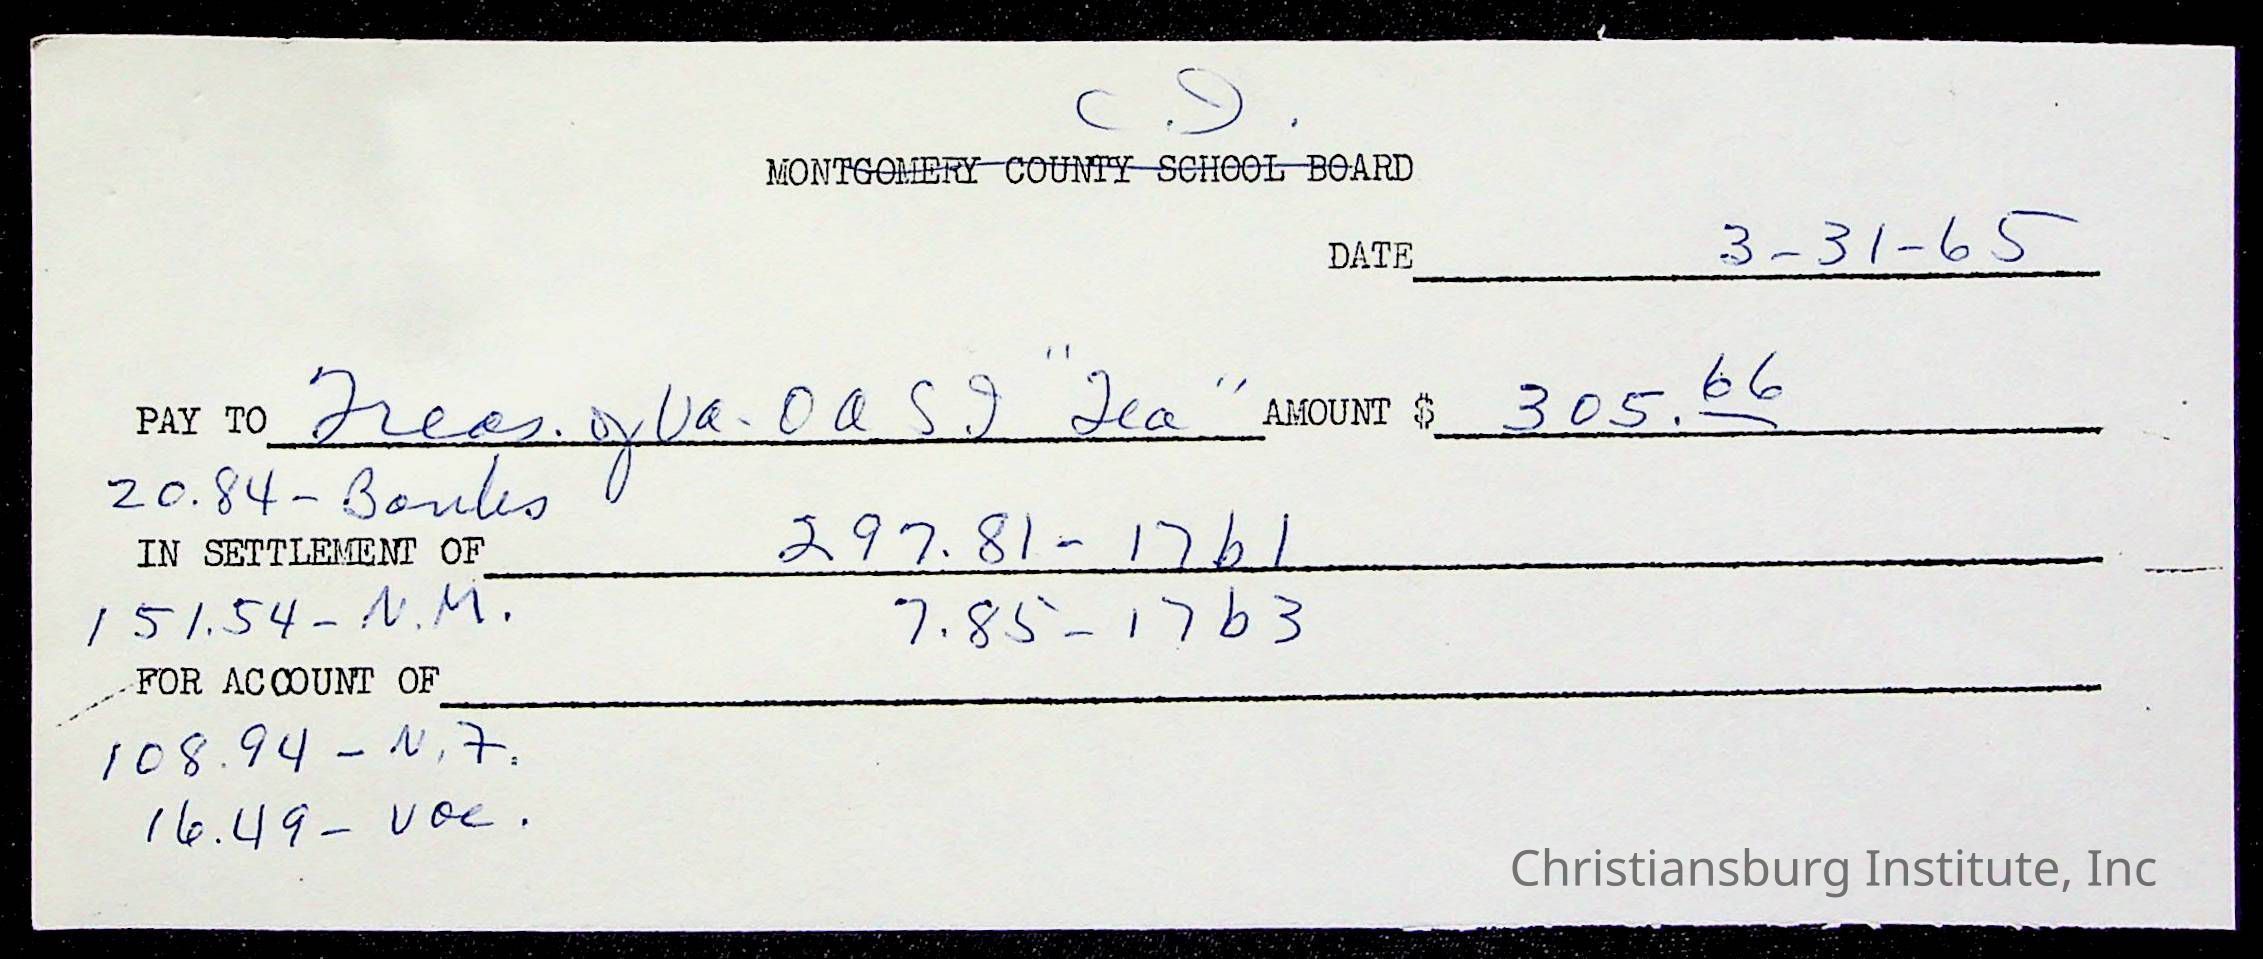 C.I.
MONTGOMERY COUNTY SCHOOL BOARD
DATE 3-31-65
PAY TO Treas. of Va. O A S I "Tea" AMOUNT $ 305.66
20.84 - Banks
IN SETTLEMENT OF 297.81 - 17b1
151.54 - N.M. 7.85 - 17b3
FOR ACCOUNT OF
108.94 - N.F.
16.49 - Voc.
Christiansburg Institute, Inc